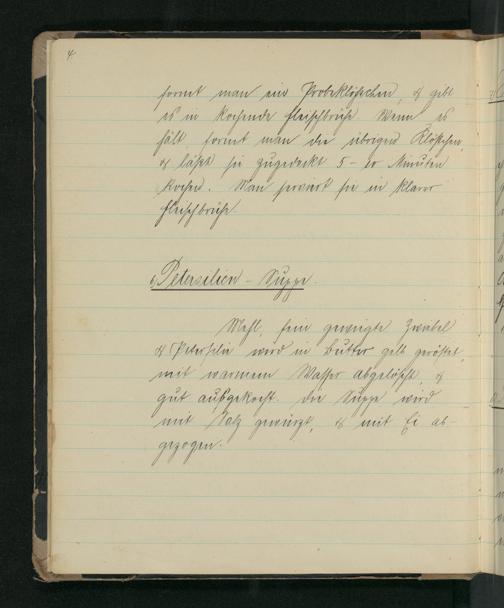 4.
formt man ein Probeklößchen, & gibt
es in kochende Fleischbrühe. Wenn es
hält, formt man die übrigen Klößchen,
& läßt sie zugedeckt 5 - 10 Minuten
kochen. Man serviert sie in klarer
Fleischbrühe.
Petersilien - Suppe.
Mehl, fein gewiegte Zwiebel
& Petersilie wird in Butter gelb geröstet,
mit warmem Wasser abgelöscht, &
gut aufgekocht. Die Suppe wird
mit Salz gewürzt, & mit Ei ab-
gezogen.